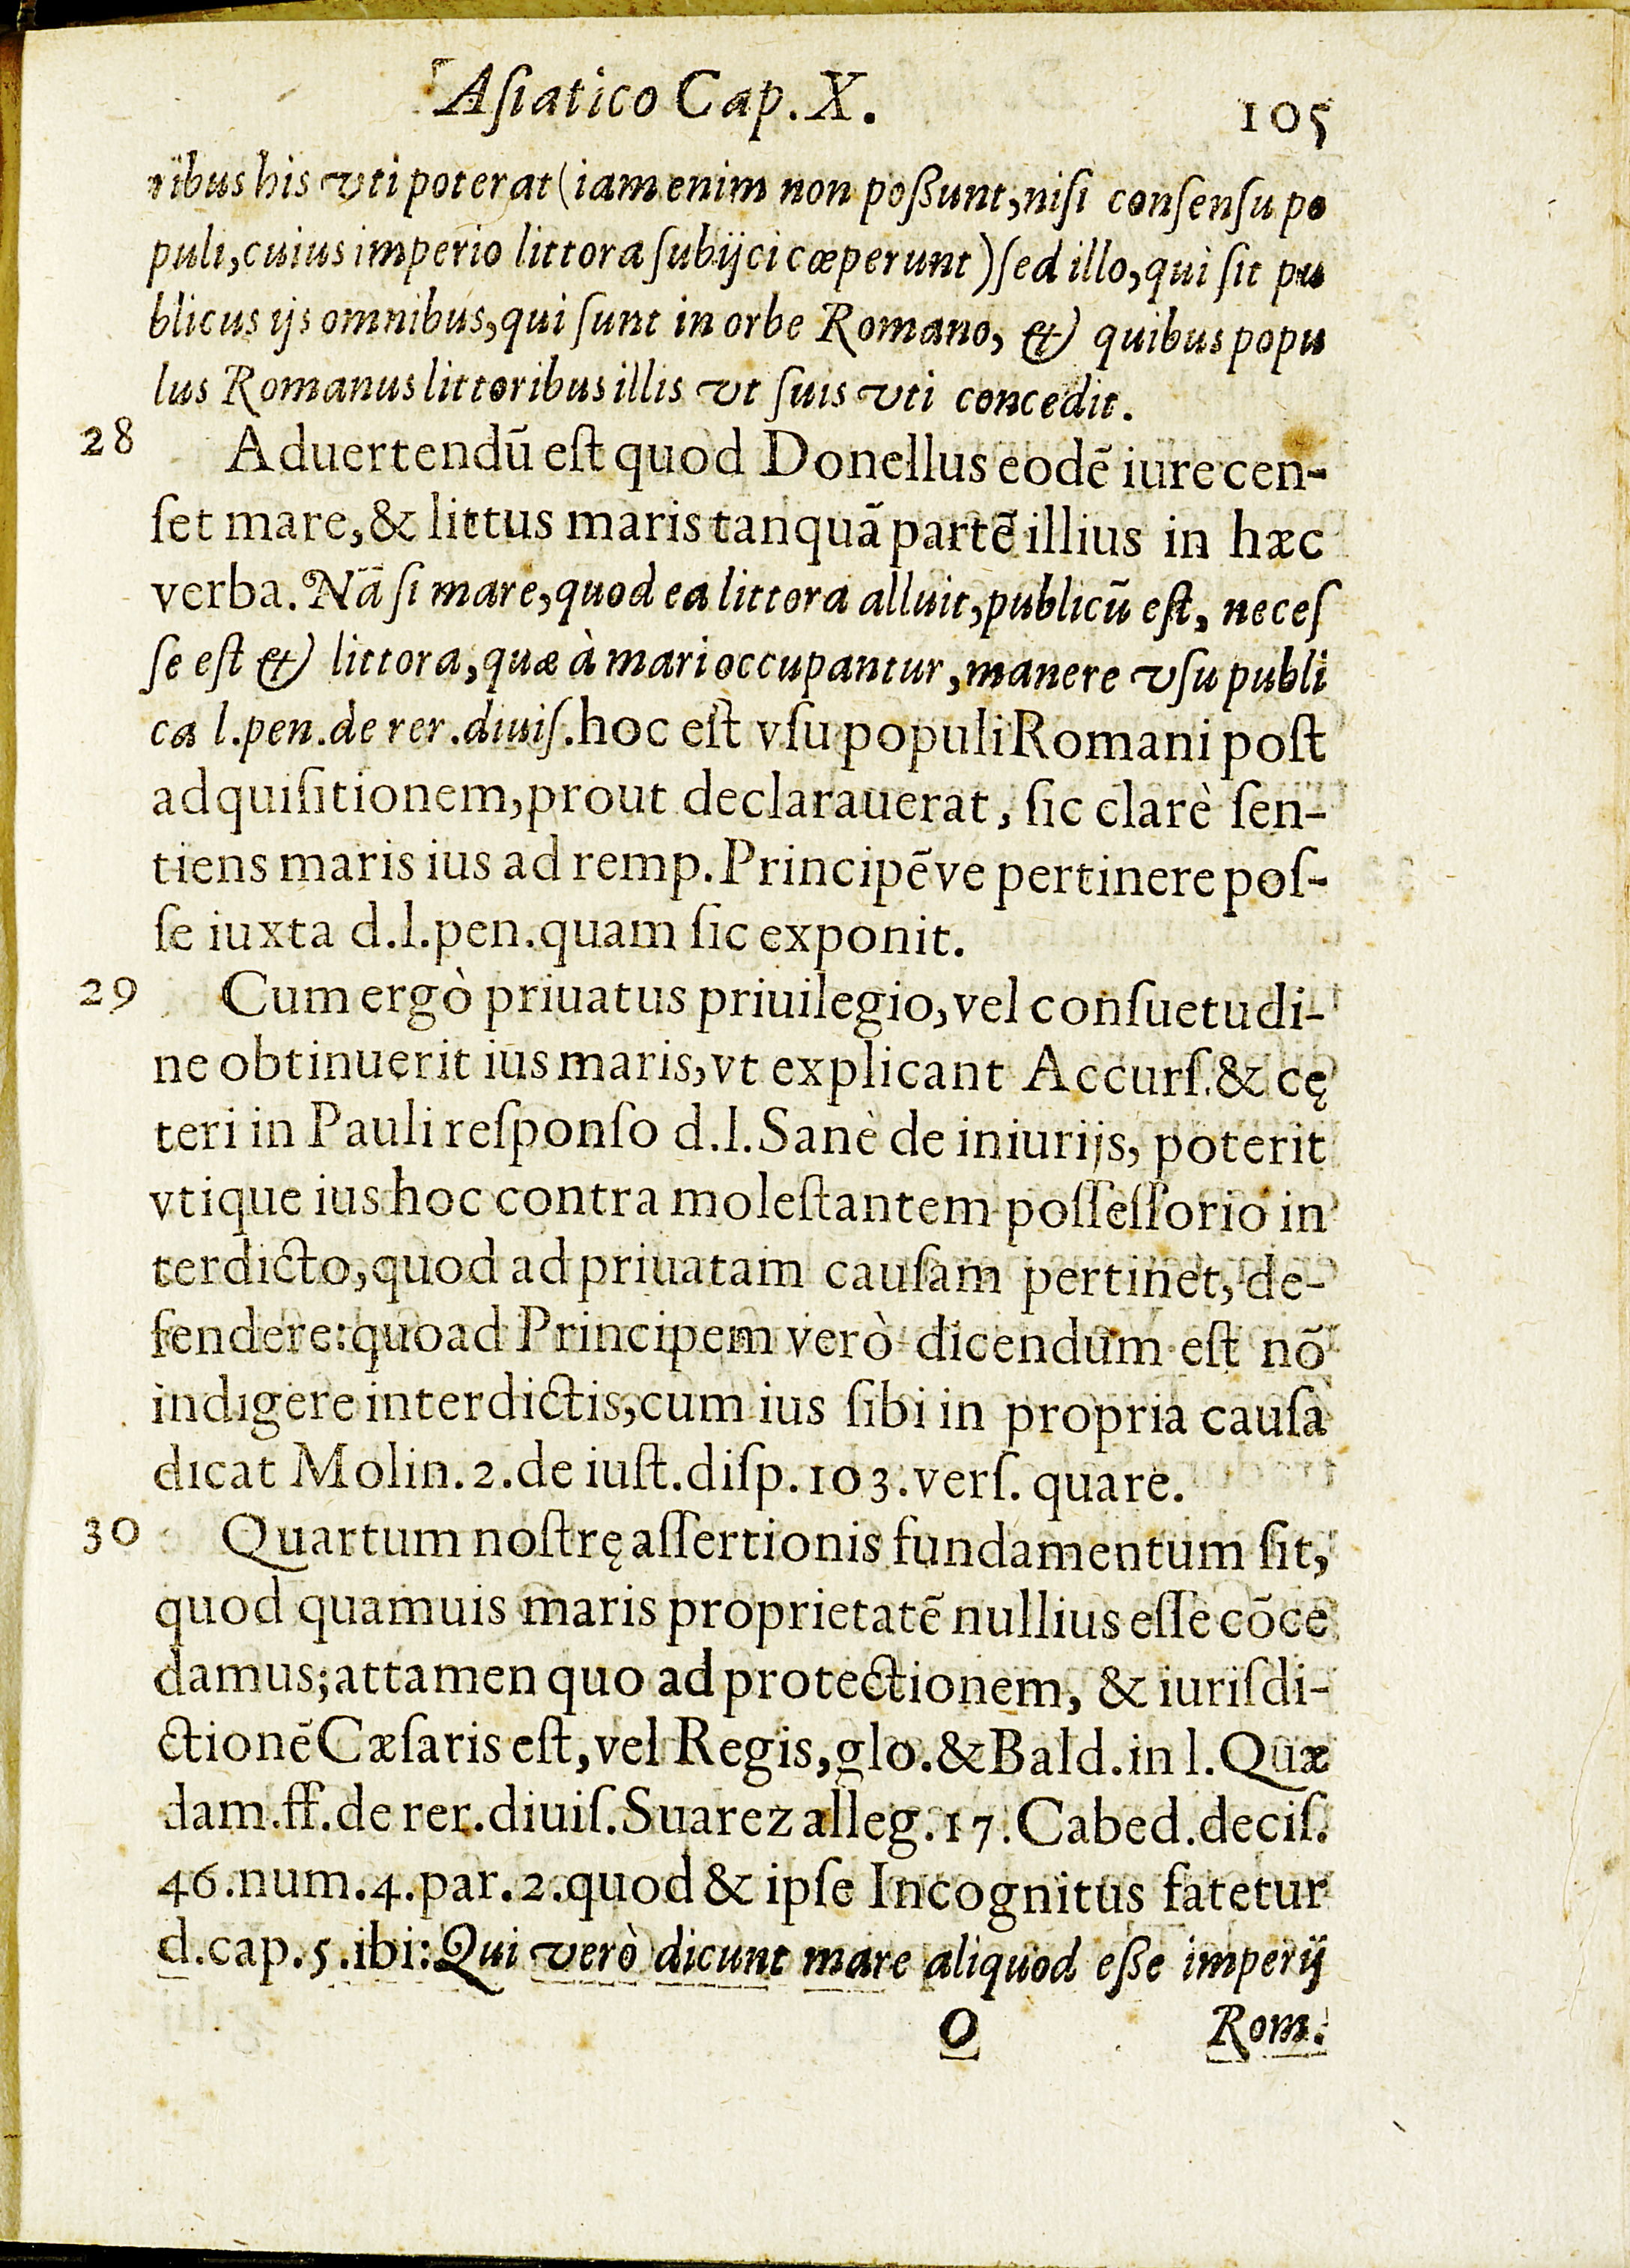 Aſiatico Cap. X. 105
ribus his vti poterat (iam enim non poßunt, niſi conſenſu po
puli, cuius imperio littora ſubijci cœperunt) ſed illo, qui ſit pu
blicus ijs omnibus, qui ſunt in orbe Romano, & quibus popu
lus Romanus littoribus illis vt ſuis vti concedit.
28 Aduertendū eſt quod Donellus eodē iure cen-
ſet mare, & littus maris tanquā partē illius in hæc
verba. Nā ſi mare, quod ea littora alluit, publicū eſt, neceſ
ſe eſt & littora, quæ à mari occupantur, manere vſu publi
ca l. pen. de rer. diuiſ. hoc eſt vſu populi Romani poſt
adquiſitionem, prout declarauerat, ſic clarè ſen-
tiens maris ius ad remp. Principēve pertinere poſ-
ſe iuxta d. l. pen. quam ſic exponit.
29 Cum ergò priuatus priuilegio, vel conſuetudi-
ne obtinuerit ius maris, vt explicant Accurſ. & cę
teri in Pauli reſponſo d. l. Sanè de iniurijs, poterit
vtique ius hoc contra moleſtantem poſſeſſorio in
terdicto, quod ad priuatam cauſam pertinet, de-
fendere: quoad Principem verò dicendum eſt nō
indigere interdictis, cum ius ſibi in propria cauſa
dicat Molin. 2. de iuſt. diſp. 103. verſ. quare.
30 Quartum noſtrę aſſertionis fundamentum ſit,
quod quamuis maris proprietatē nullius eſſe cōce
damus; attamen quo ad protectionem, & iuriſdi-
ctionē Cæſaris eſt, vel Regis, glo. & Bald. in l. Quæ
dam. ff. de rer. diuiſ. Suarez alleg. 17. Cabed. deciſ.
46. num. 4. par. 2. quod & ipſe Incognitus fatetur
d. cap. 5. ibi: Qui verò dicunt mare aliquod eße imperij
O Rom.